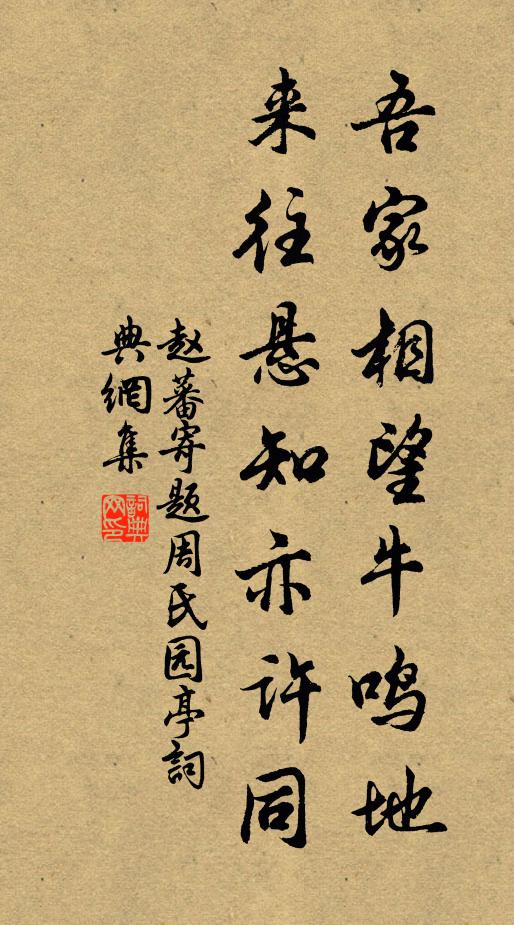 吾家相望牛鸣地
来往悬知亦许同
赵蕃寄题周氏园亭詞
典網集
詞典网印